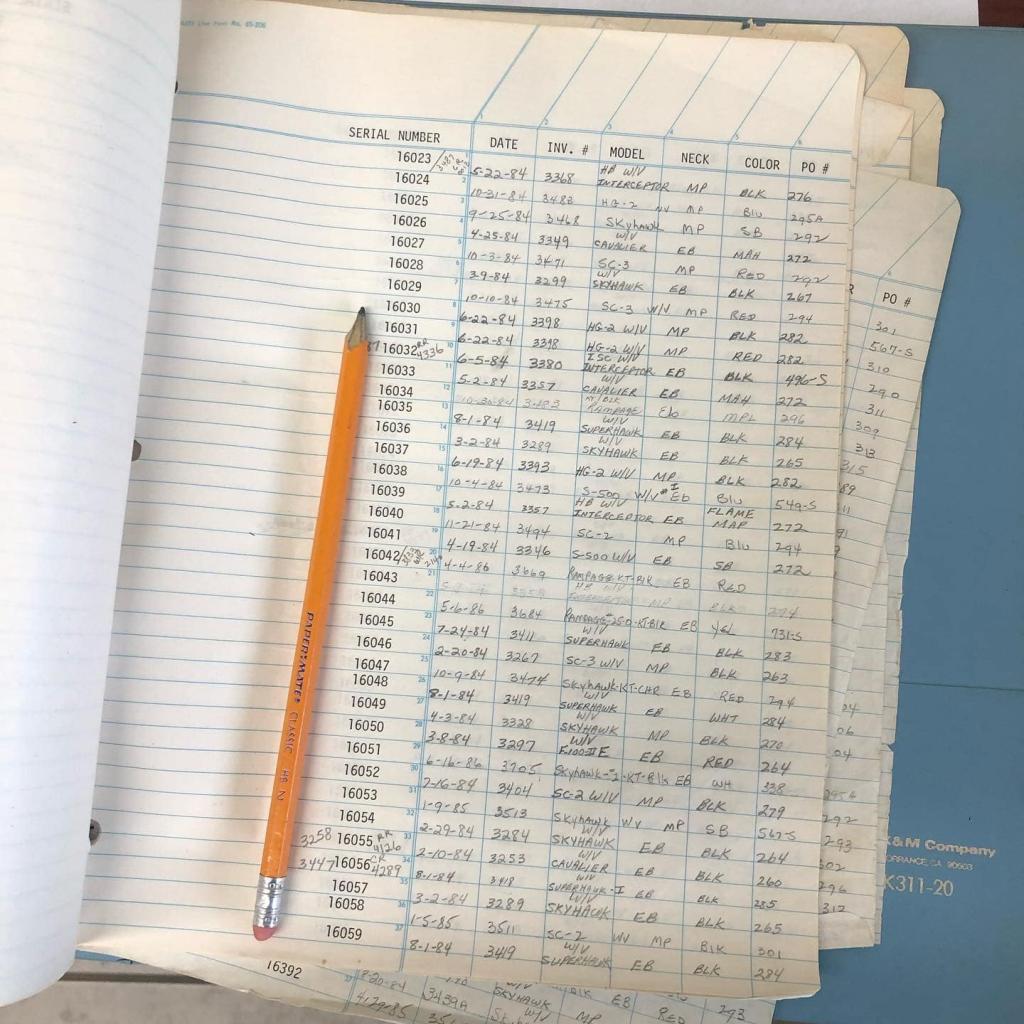 SERIAL NUMBER DATE INV. # MODEL NECK COLOR PO #
16023 5-22-84 3368 HB W/V INTERCEPTOR MP BLK 276
16024 10-31-84 3483 HG-2 WV MP Blu 295A
16025 9-25-84 3468 Skyhawk MP SB 292
16026 4-25-84 3349 W/V CAVALIER EB MAH 272
16027 10-3-84 3471 SC-3 MP RED 292
16028 3-9-84 3299 W/V SKYHAWK EB BLK 267
16029 10-10-84 3475 SC-3 W/V MP RED 294
16030 6-22-84 3398 HG-2 W/V MP BLK 282
16031 6-22-84 3398 HG-2 W/V MP RED 282
16032 RR 4336 6-5-84 3380 ISC W/V INTERCEPTOR EB BLK 496-S
16033 5-2-84 3357 W/V CAVALIER EB MAH 272
16034 10-30-84 3483 KT/BLK RAMPAGE Eb MPL 296
16035 8-1-84 3419 W/V SUPERHAWK EB BLK 284
16036 3-2-84 3289 W/V SKYHAWK EB BLK 265
16037 6-19-84 3393 HG-2 W/V MP BLK 282
16038 10-4-84 3473 S-500 W/V #I Eb Blu 549-S
16039 5-2-84 3357 HB W/V INTERCEPTOR EB FLAME MAP 272
16040 11-21-84 3494 SC-2 MP Blu 294
16041 4-19-84 3346 S-500 W/V EB SB 272
16042 4-4-86 3669 RAMPAGE-KT-BLK EB RED
16043 3358 HB W/V INTERCEPTOR MP BLK 274
16044 5-6-86 3684 EB YEL 731-S
16045 7-24-84 3411 W/V SUPERHAWK EB BLK 283
16046 2-20-84 3267 SC-3 W/V MP BLK 263
16047 10-9-84 3474 Skyhawk-KT-CHR EB RED 294
16048 8-1-84 3419 W/V SUPERHAWK EB WHT 284
16049 4-3-84 3328 W/V SKYHAWK MP BLK 270
16050 3-8-84 3297 W/V E100IIE EB RED 264
16051 6-16-86 3705 Skyhawk-I-KT-Blk EB WH 338
16052 7-16-84 3404 SC-2 W/V MP BLK 279
16053 1-9-85 3513 Skyhawk WV MP SB 567-S
16054 2-29-84 3284 W/V SKYHAWK EB BLK 264
3258 16055 RR 4126 2-10-84 3253 W/V CAVALIER EB BLK 260
3447 16056 CR 4289 8-1-84 3418 W/V SUPERHAWK-I EB BLK 285
16057 3-2-84 3289 W/V SKYHAWK EB BLK 265
16058 1-5-85 3511 SC-2 WV MP Blk 301
16059 8-1-84 3419 W/V SUPERHAWK EB BLK 284
16392 8-20-84 3439A SKYHAWK EB RED 293
4-29-85 MP
PO #
301
567-S
310
290
311
309
313
315
PAPER:MATE CLASSIC HB 2
K&M Company
TORRANCE, CA 90503
K311-20